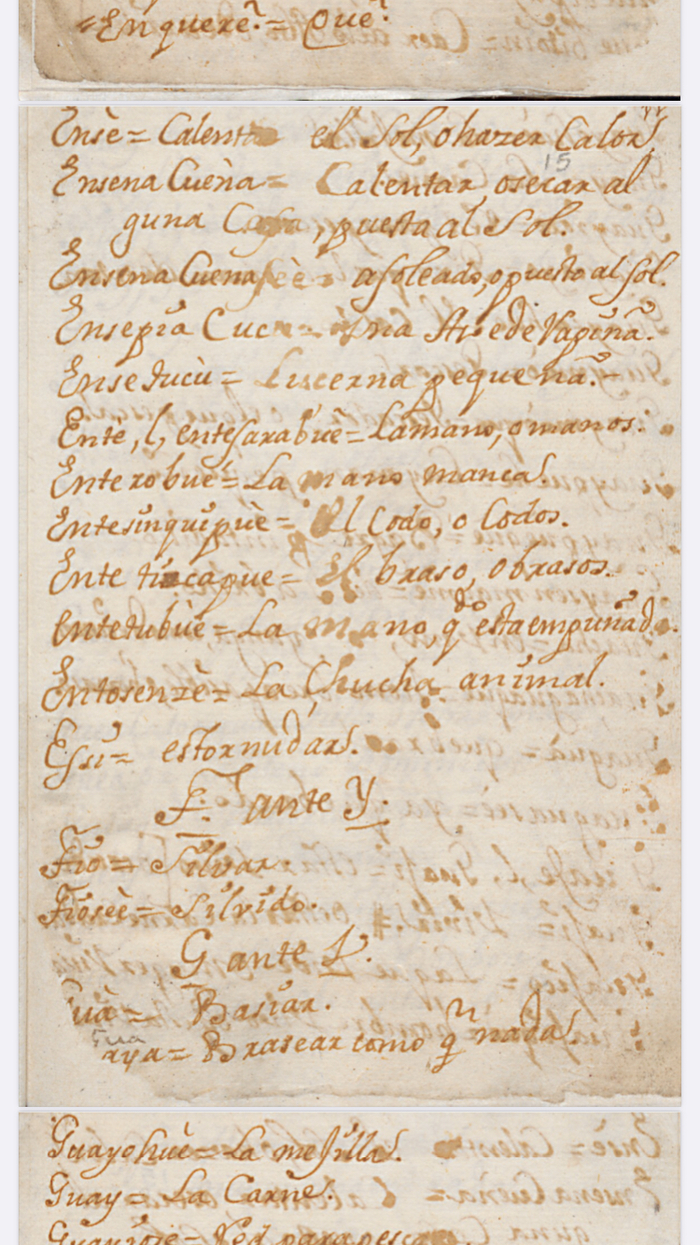 Enquere = Que
Ensè = Calenta el Sol, o hazer Calor.
15
Ensena Cueña = Calentar o secar al
guna Cossa, puesta al Sol.
Ensena Cuenasèè = asoleado, o puesto al sol.
Ensepia = Una Ave de Vapiña.
Enseducù = Luscerna pequeña.
Entè, l, entesarabuè = La mano, o manos.
Enterobuè = La mano manca.
Entesinquipuè = El Codo, o Codos.
Ente capue = El braso, o brasos.
Entedubuè = La mano q̃ está empuñada.
Entosenzè = La Chucha animal.
Essi = estornudar.
F. ante Y.
Fio = Silvar.
Fioseè = Silvido.
G ante
uà = Basiar.
Gua
aya = Brasear como qn nada.
Guayohuè = La mesilla.
Guay = La Carne.
= Red para pescar